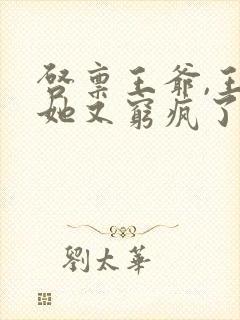 启禀王爷,王
她又窮疯了
劉太華